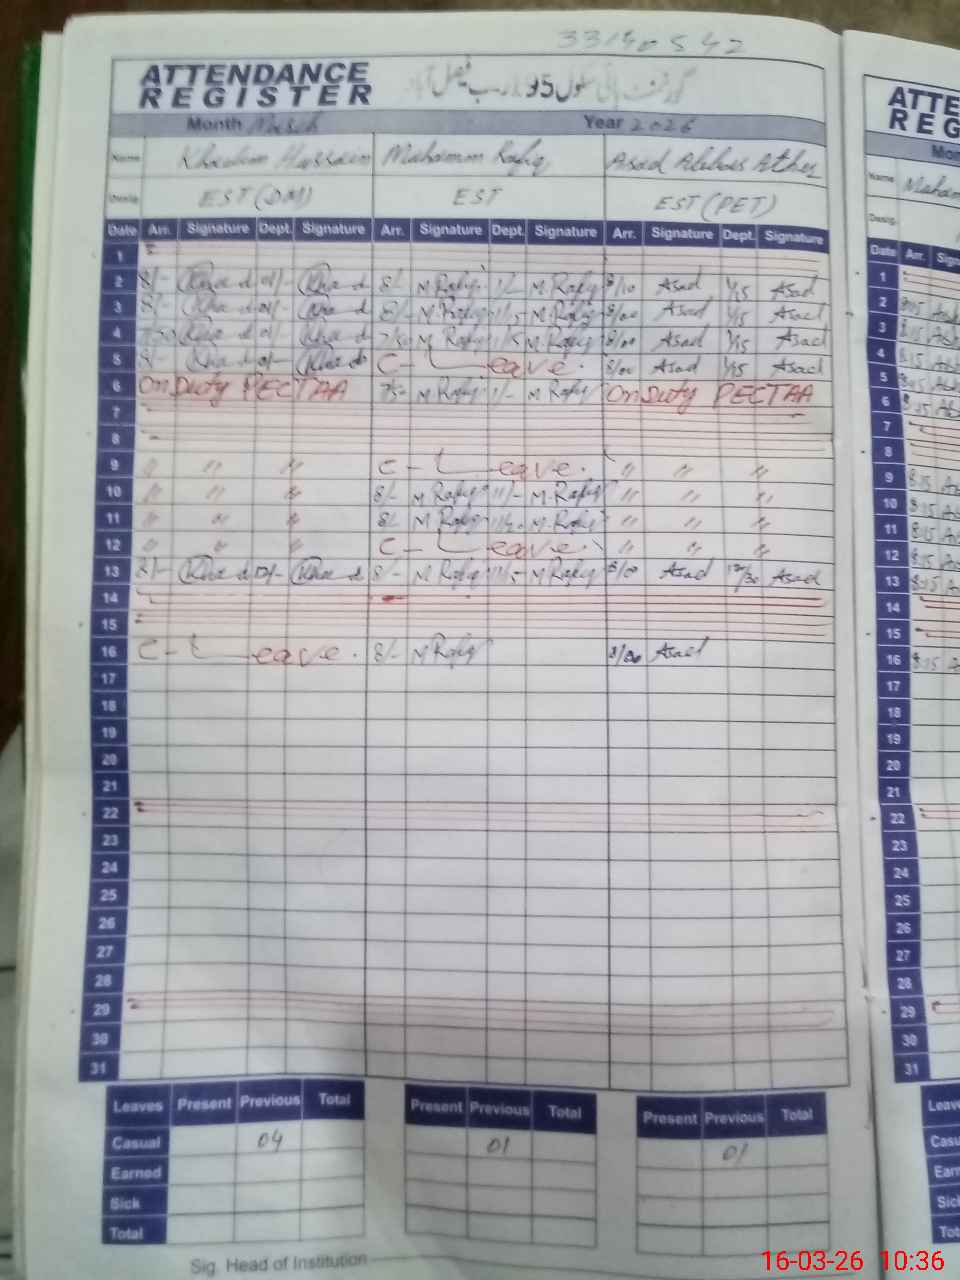 33140542
ATTENDANCE
REGISTER
Month March Year 2026
Name Khadim Hussain Muhammad Rafiq Asad Abbas Ather
Desig. EST (DM) EST EST (PET)
Date Arr. Signature Dept. Signature Arr. Signature Dept. Signature Arr. Signature Dept. Signature
1
2 8/- 8/- M Rafiq 1/- M. Rafiq 8/10 Asad 1/15 Asad
3 8/- 8/- M Rafiq 1/15 M. Rafiq 8/00 Asad 1/15 Asad
4 7/50 M Rafiq 1/15 M. Rafiq 8/00 Asad 1/15 Asad
5 8/- C - Leave. 8/00 Asad 1/15 Asad
6 On Duty PECTAA M Rafiq 1/- M Rafiq On Duty PECTAA
7
8
9 " " " C - Leave. " " "
10 " " " 8/- M Rafiq 11/- M. Rafiq " " "
11 " " " 8/- M Rafiq M. Rafiq " " "
12 " " " C - Leave " " "
13 8/- 12/- 8/- M Rafiq M Rafiq 8/00 Asad 12/30 Asad
14
15
16 C - Leave. 8/- M Rafiq 8/00 Asad
17
18
19
20
21
22
23
24
25
26
27
28
29
30
31
Leaves Present Previous Total Present Previous Total Present Previous Total
Casual 04 01 01
Earned
Sick
Total
Sig. Head of Institution
ATTE
REG
Mon
Name Muham
Desig.
Date Arr. Sign
1
2 8:15
3 8:15
4 8:15
5 8:15
6 8:15
7
8
9 8:15
10 8:15
11 8:15
12 8:15
13 8:15
14
15
16 8:15
17
18
19
20
21
22
23
24
25
26
27
28
29
30
31
Leave
Casu
Earn
Sick
Tot
16-03-26 10:36